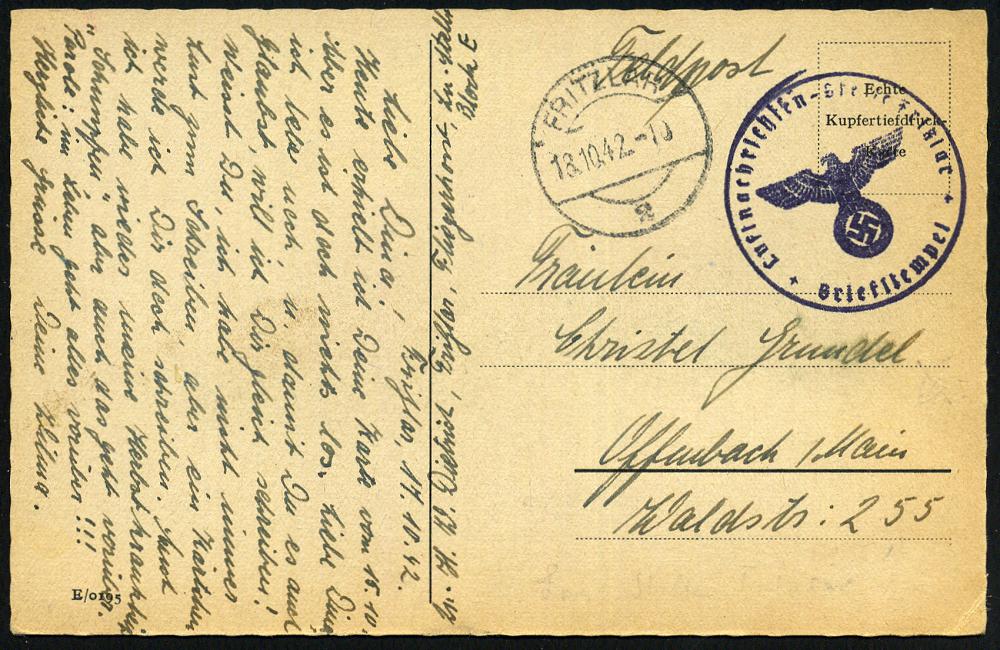 Feldpost
FRITZLAR
18.10.42.-10
a
Luftnachrichten-Stelle Fritzlar
Briefstempel
Echte
Kupfertiefdruck-
Karte
Fräulein
Christel Grundel
Offenbach /Main
Waldstr: 255
Fritzlar, 17.10.42.
Liebe Dina!
Heute erhielt ich Deine Karte vom 15.10.
Aber es ist doch nichts los. Liebe Dina
ich lebe noch, u. damit Du es auch
glaubst, will ich Dir gleich schreiben!
Meinst Du, ich habe nicht immer
Lust zum Schreiben, aber ein Kärtchen
werde ich Dir doch schreiben. Sonst
ich habe wieder meine Herbstkrankheit
"Schnupfen" aber auch das geht vorüber.
Parole: im Leben geht alles vorüber!!!
Herzliche Grüsse Deine
E/0195